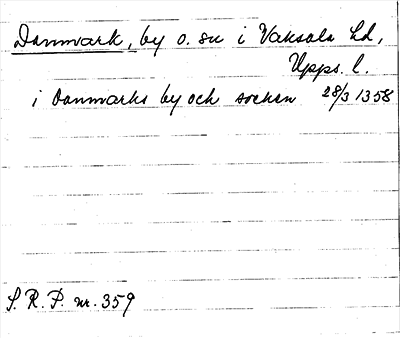 Danmark, by o. sn i Vaksala hd,
Upps. l.
i Danmarks by och socken 28/3 1358
S. R. P. nr. 359